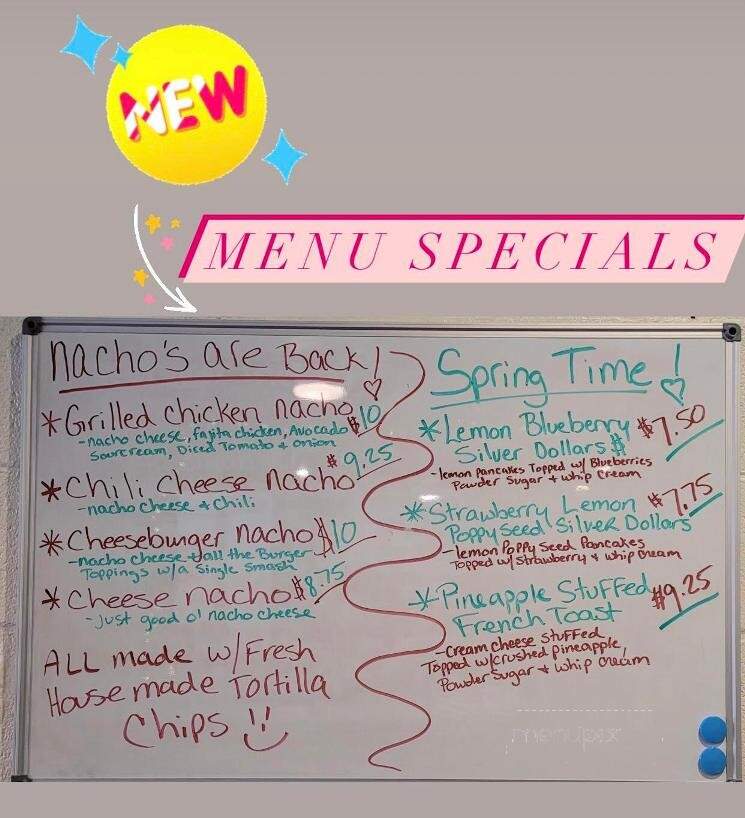 NEW
MENU SPECIALS
nacho's are Back!
*Grilled chicken nacho $10
-nacho cheese, fajita chicken, Avocado
Sourcream, Diced Tomato & onion
*Chili Cheese nacho $9.25
-nacho cheese & chili
*Cheeseburger nacho $10
-nacho cheese & all the Burger
Toppings w/a Single Smash
*Cheese nacho $8.75
-Just good ol' nacho cheese
ALL made w/Fresh
House made Tortilla
Chips !!
Spring Time!
*Lemon Blueberry $7.50
Silver Dollars$
-lemon pancakes Topped w/ Blueberries
Powder Sugar & whip cream
*Strawberry Lemon $7.75
Poppy Seed Silver Dollars
-lemon Poppy Seed Pancakes
Topped w/ Strawberry & whip cream
*Pineapple Stuffed $9.25
French Toast
-Cream cheese stuffed
Topped w/crushed pineapple,
Powder Sugar & whip cream